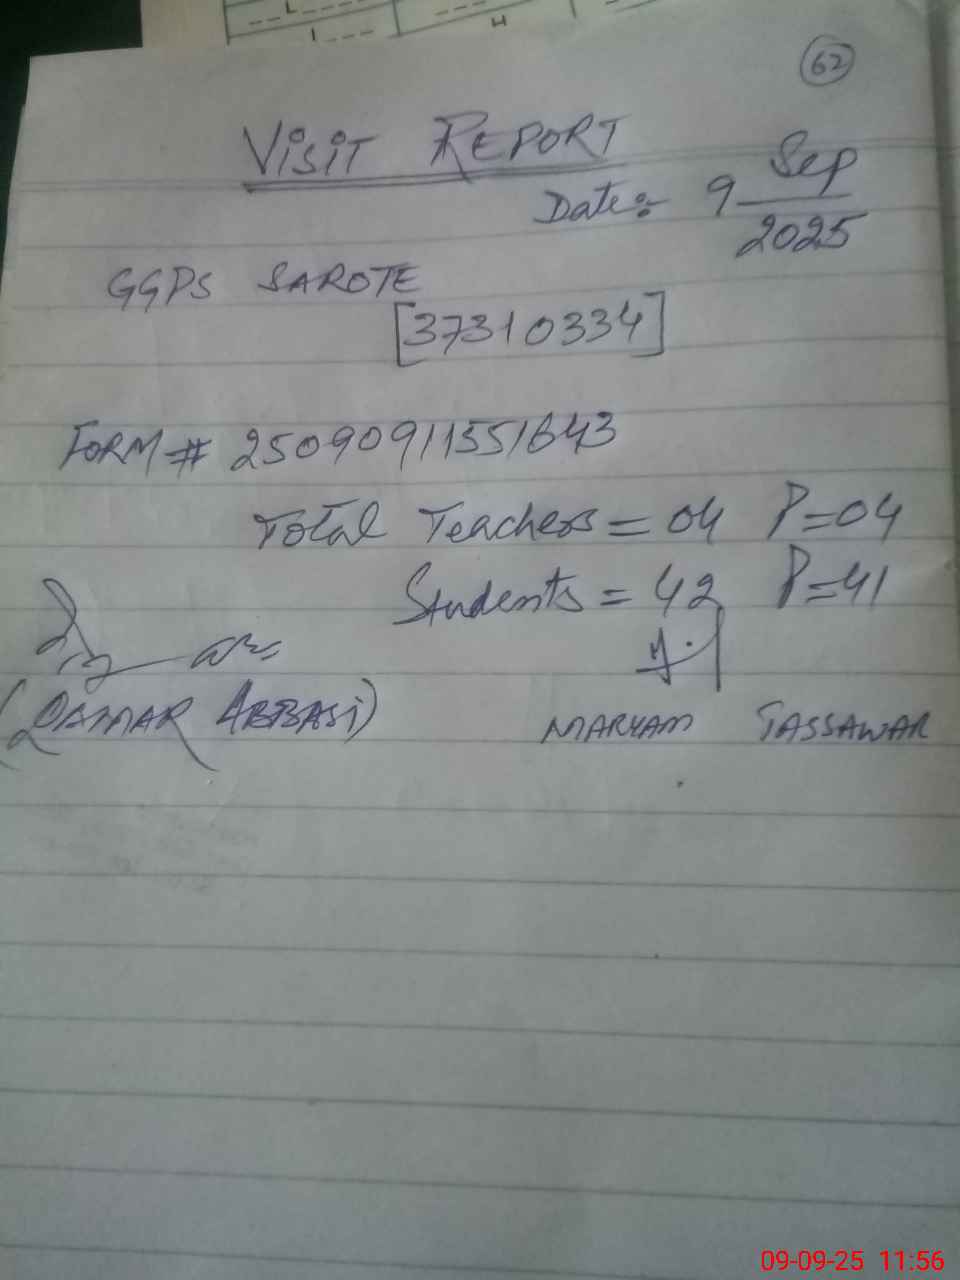 L
I
H
62
VISIT REPORT
Date:- 9 Sep
2025
GGPS SAROTE
[37310334]
FORM # 25090911551643
Total Teachers = 04 P=04
Students = 42 P=41
(QAMAR ABBASI)
MARYAM TASSAWAR
09-09-25 11:56